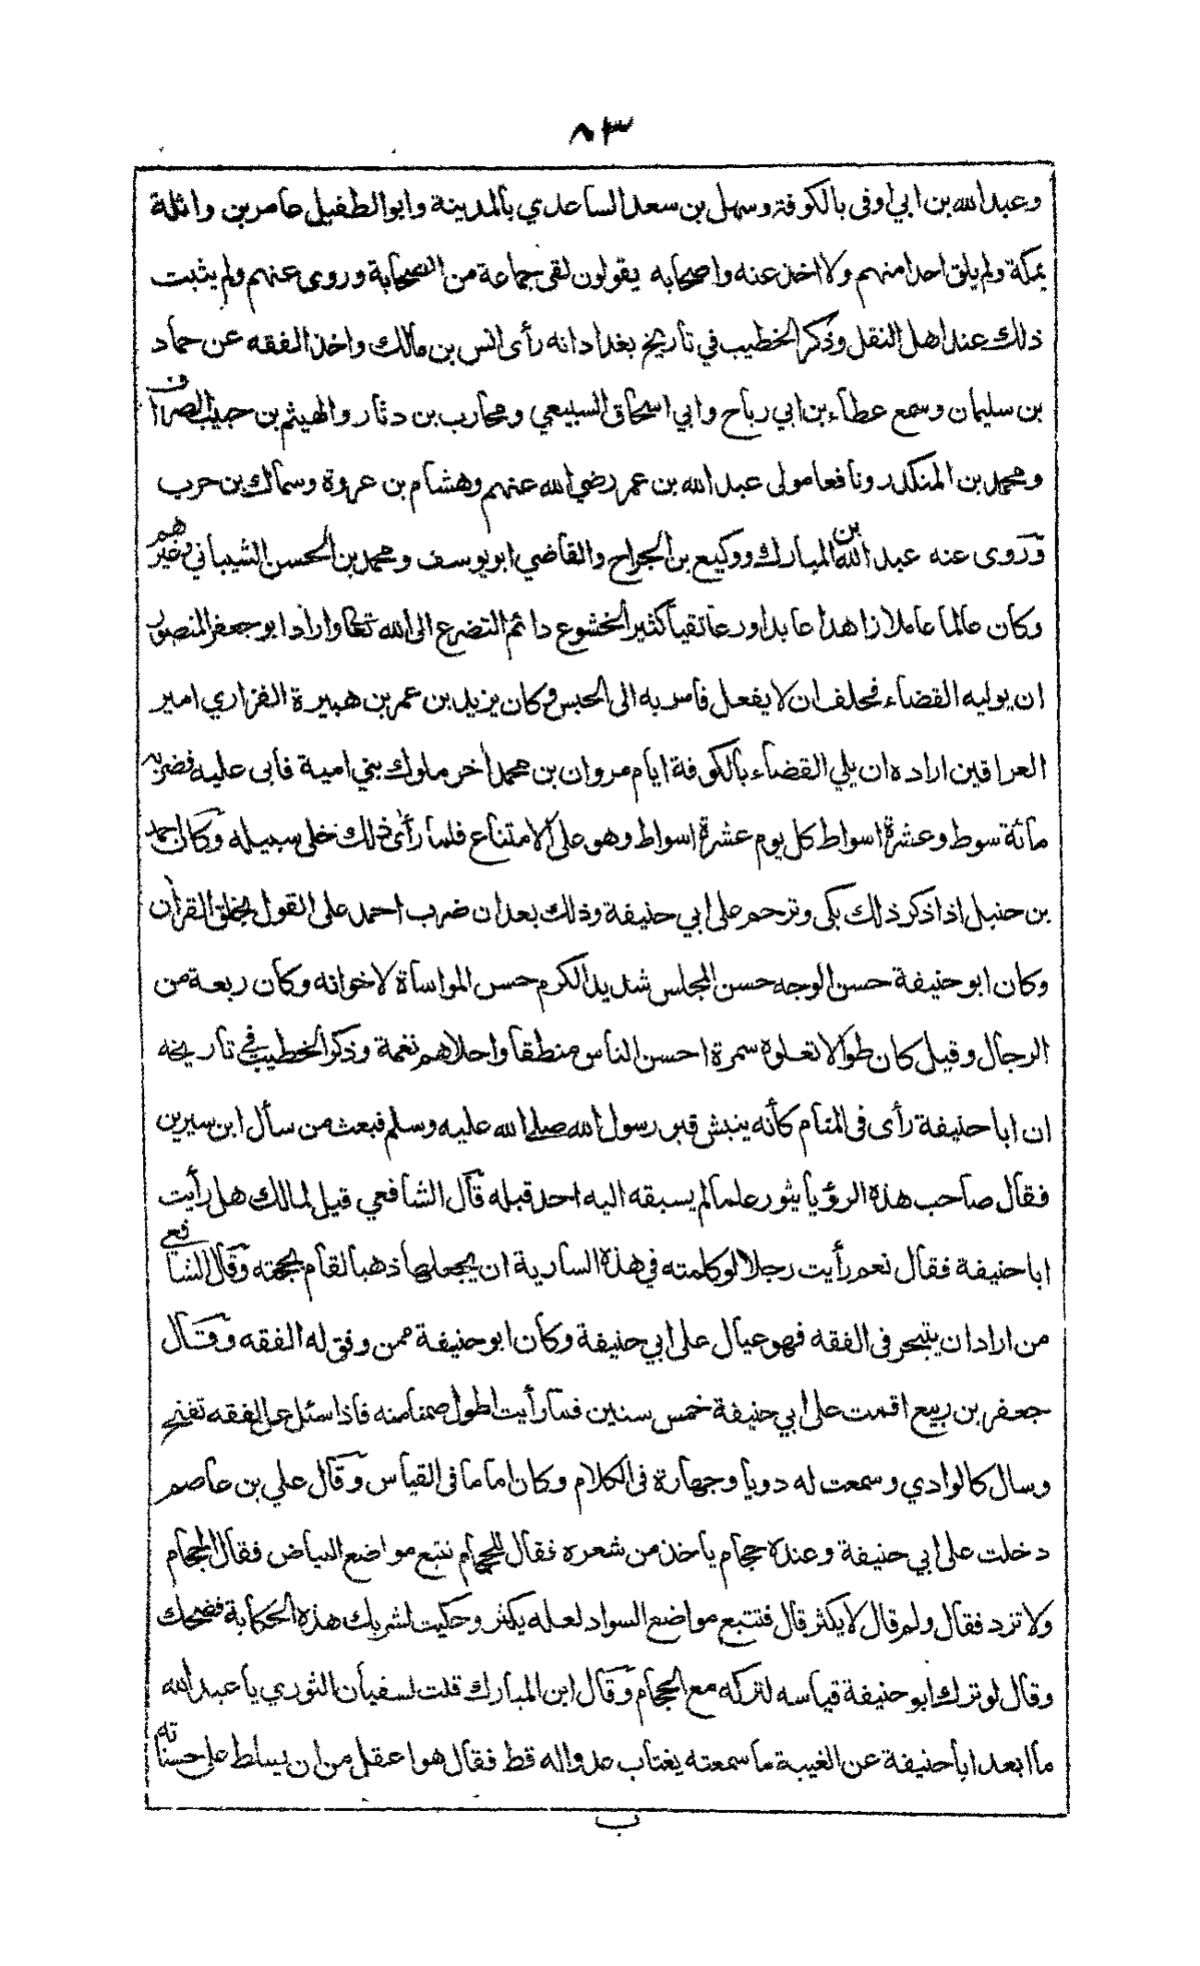 ٨٣
وعبدالله بن ابي اوفى بالكوفة وسهل بن سعد الساعدي بالمدينة وابو الطفيل عامر بن واثلة
بمكة ولم يلق احدا منهم ولا اخذ عنه واصحابه يقولون لقى جماعة من الصحابة وروى عنهم ولم يثبت
ذلك عند اهل النقل وذكر الخطيب في تأريخ بغداد انه رأى انس بن مالك واخذ الفقه عن حماد
بن سليمان وسمع عطاء بن ابي رباح وابي اسحاق السبيعي ومحارب بن دثار والهيثم بن حبيب الصراف
ومحمد بن المنكدر ونافعا مولى عبدالله بن عمر رضي الله عنهم وهشام بن عروة وسماك بن حرب
وروى عنه عبدالله بن المبارك ووكيع بن الجراح والقاضي ابو يوسف ومحمد بن الحسن الشيباني وغيرهم
وكان عالما عاملا زاهدا عابدا ورعا تقيا كثير الخشوع دائم التضرع الى الله تعا واراد ابو جعفر المنصور
ان يوليه القضاء فحلف ان لا يفعل فامر به الى الحبس وكان يزيد بن عمر بن هبيرة الفزاري امير
العراقين اراده ان يلي القضاء بالكوفة ايام مروان بن محمد اخر ملوك بني امية فابى عليه فضربه
مائة سوط وعشرة اسواط كل يوم عشرة اسواط وهو على الامتناع فلما رأى ذلك خلى سبيله وكان احمد
بن حنبل اذا ذكر ذلك بكى وترحم على ابي حنيفة وذلك بعد ان ضرب احمد على القول بخلق القرأن
وكان ابو حنيفة حسن الوجه حسن المجلس شديد الكرم حسن المواساة لاخوانه وكان ربعة من
الرجال وقيل كان طوالا تعلوه سمرة احسن الناس منطقا واحلاهم نغمة وذكر الخطيب في تأريخه
ان ابا حنيفة رأى فى المنام كأنه ينبش قبر رسول الله صلى الله عليه وسلم فبعث من سأل ابن سيرين
فقال صاحب هذه الرؤيا يثور علما لم يسبقه اليه احد قبله قال الشافعي قيل لمالك هل رأيت
ابا حنيفة فقال نعم رأيت رجلا لو كلمته في هذه السارية ان يجعلها ذهبا لقام بحجته وقال الشافعي
من اراد ان يتبحر فى الفقه فهو عيال على ابي حنيفة وكان ابو حنيفة ممن وفق له الفقه وقال
جعفر بن ربيع اقمت على ابي حنيفة خمس سنين فما رأيت اطول صمتا منه فاذا سئل عن الفقه تفتح
وسال كالوادي وسمعت له دويا وجهارة فى الكلام وكان اماما فى القياس وقال علي بن عاصم
دخلت على ابي حنيفة وعنده حجام يأخذ من شعره فقال للحجام نتبع مواضع البياض فقال الحجام
ولا تزد فقال ولم قال لا يكثر قال فتتبع مواضع السواد لعله يكثر وحكيت لشريك هذه الحكاية فضحك
وقال لو ترك ابو حنيفة قياسه لتركه مع الحجام وقال ابن المبارك قلت لسفيان الثوري يا عبدالله
ما ابعد ابا حنيفة عن الغيبة ما سمعته يغتاب عدوا له قط فقال هو اعقل من ان يسلط على حسناته
ب